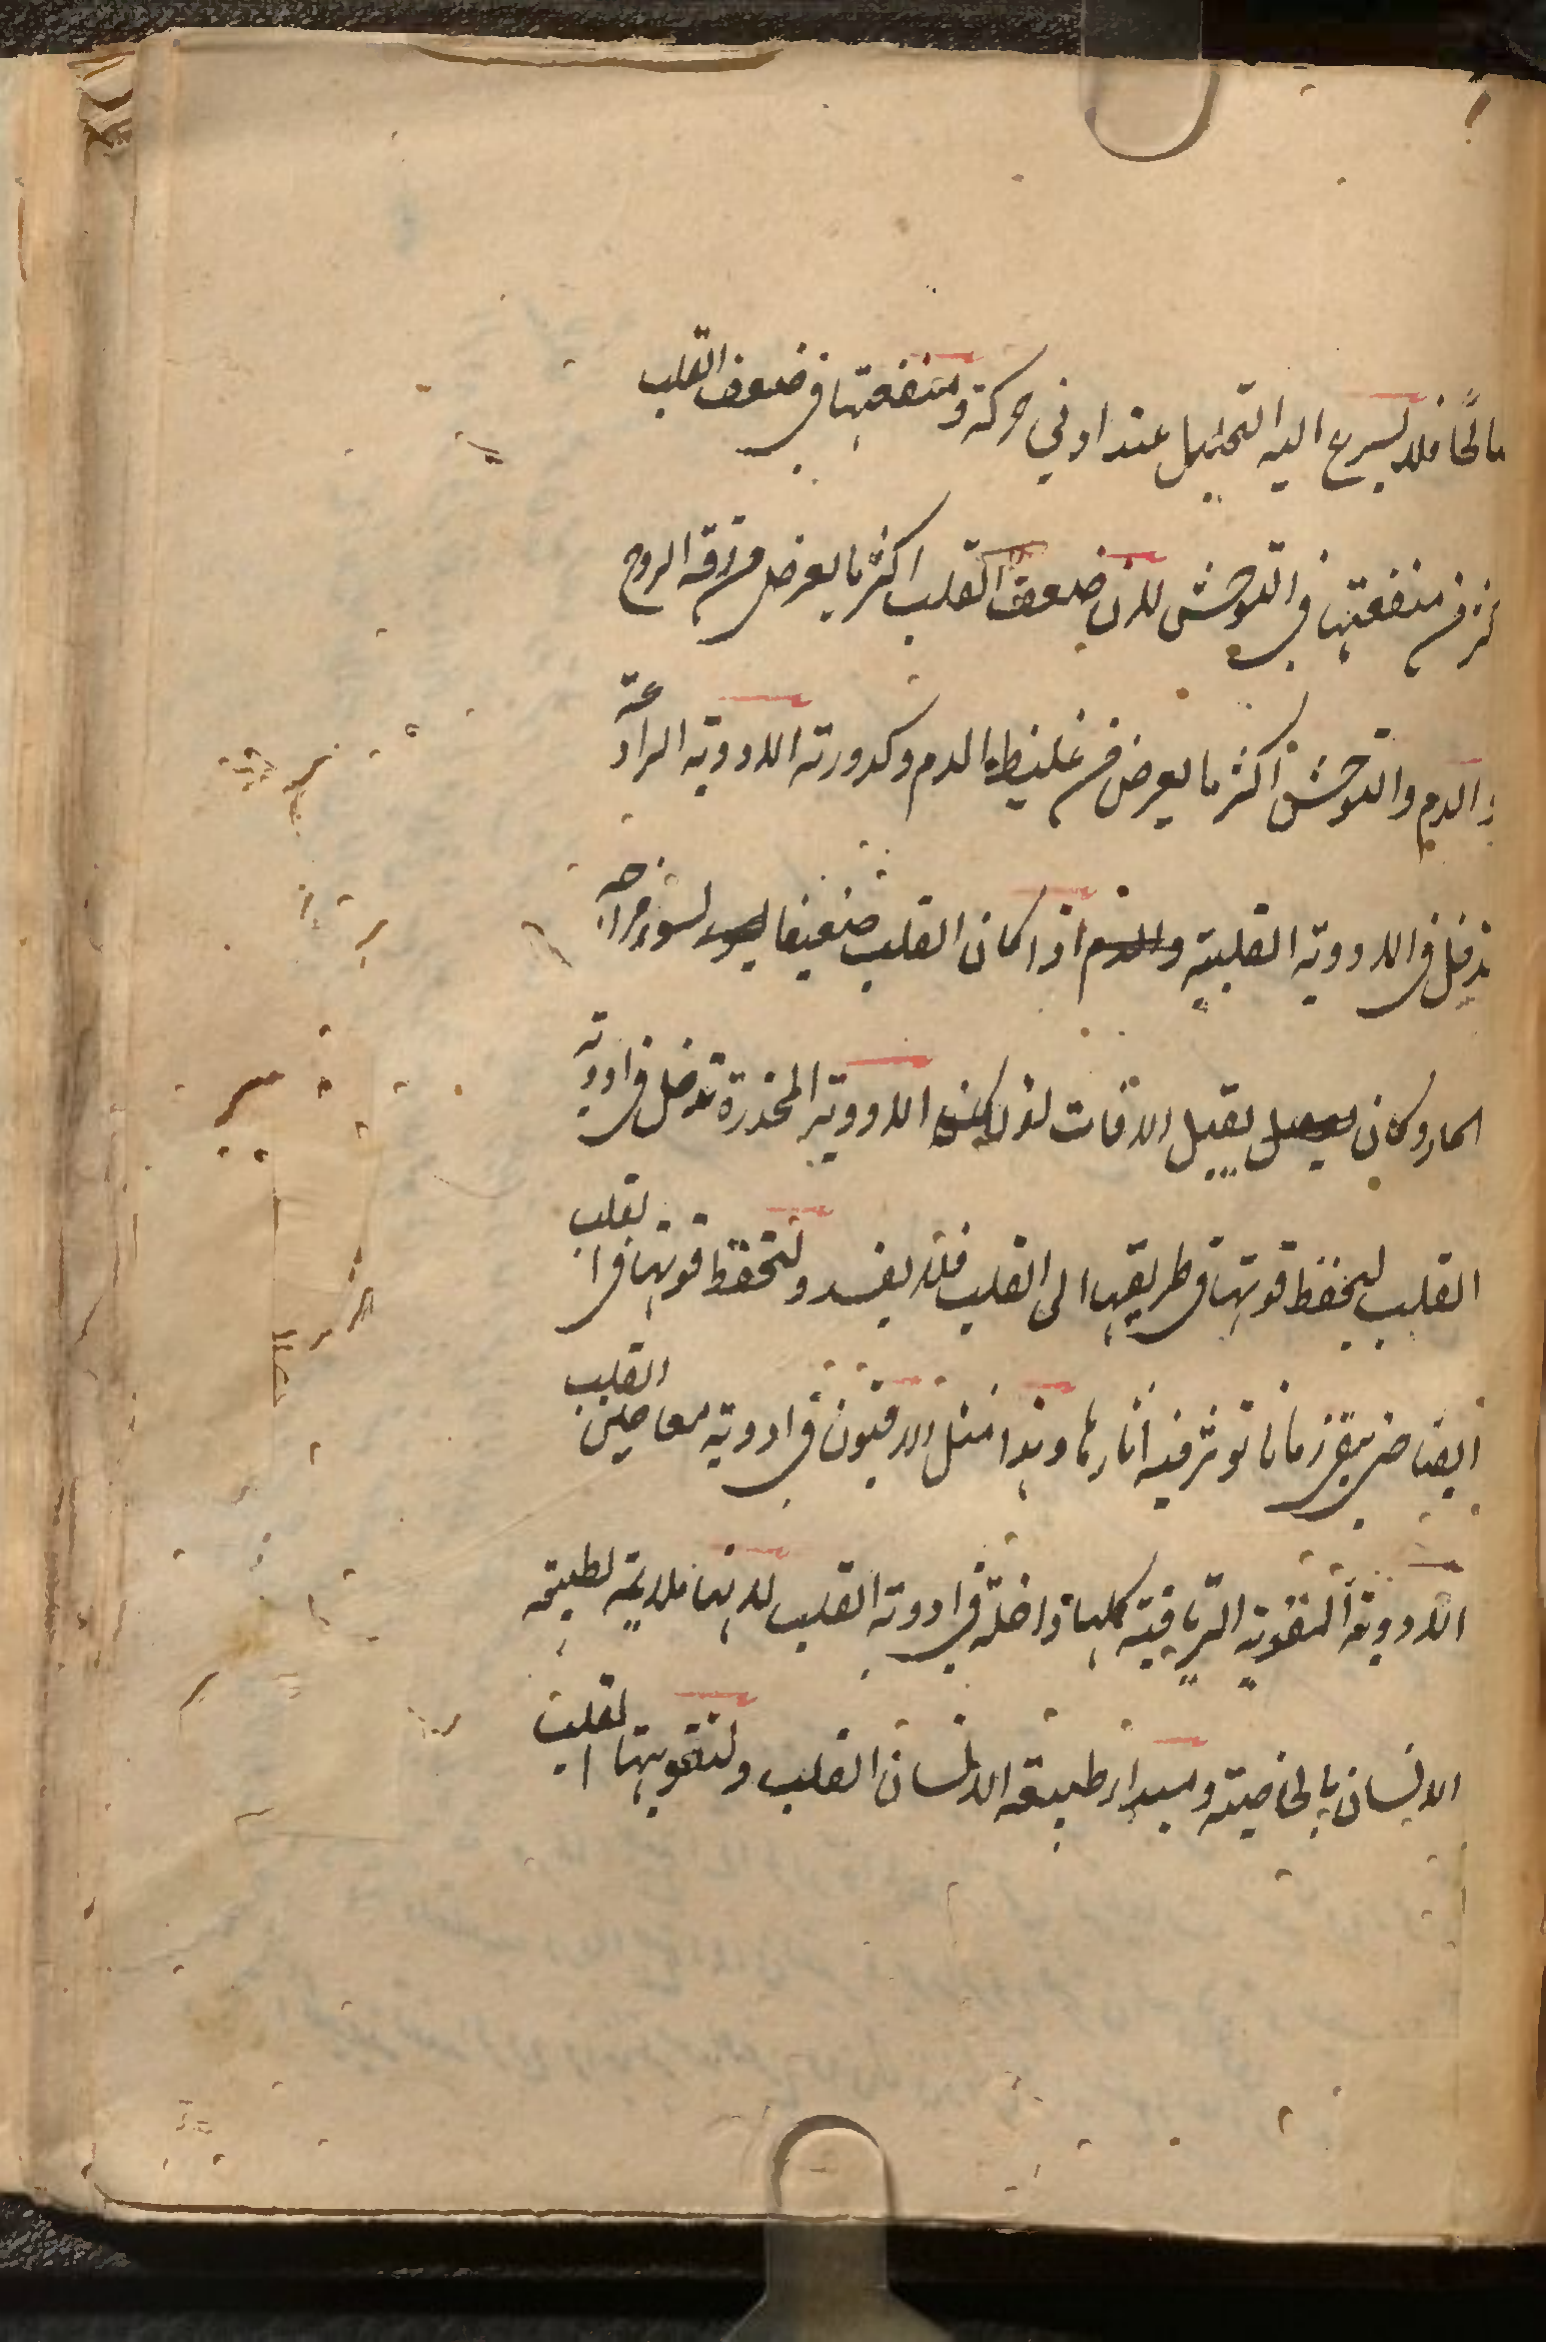 مالحا فلا يسرع اليه التحليل عند ادني حركة ومنفعتها في ضعف القلب
من منفعتها في التوحش لان ضعف القلب اكثر ما يعرض من رقة الروح
والدم والتوحش اكثر ما يعرض من غليظ الدم وكدورته الادوية الرادعة
تدخل في الادوية القلبية اذا كان القلب ضعيفا لسوء مزاجه
الحار وكان يقبل الافات لذلك الادوية المخدرة تدخل في ادوية
القلب ليحفظ قوتها في طريقها الى القلب فلا يفسد ولتحفظ قوتها في القلب
ايضا حتى يبقى زمانا تؤثر فيه اثارها وهذا مثل الافيون في ادوية معاجين القلب
الادوية المقوية الترياقية كلها داخلة في ادوية القلب لانها ملايمة لطبيعة
الانسان بالخاصية ومبدا طبيعة الانسان القلب ولتقويتها القلب